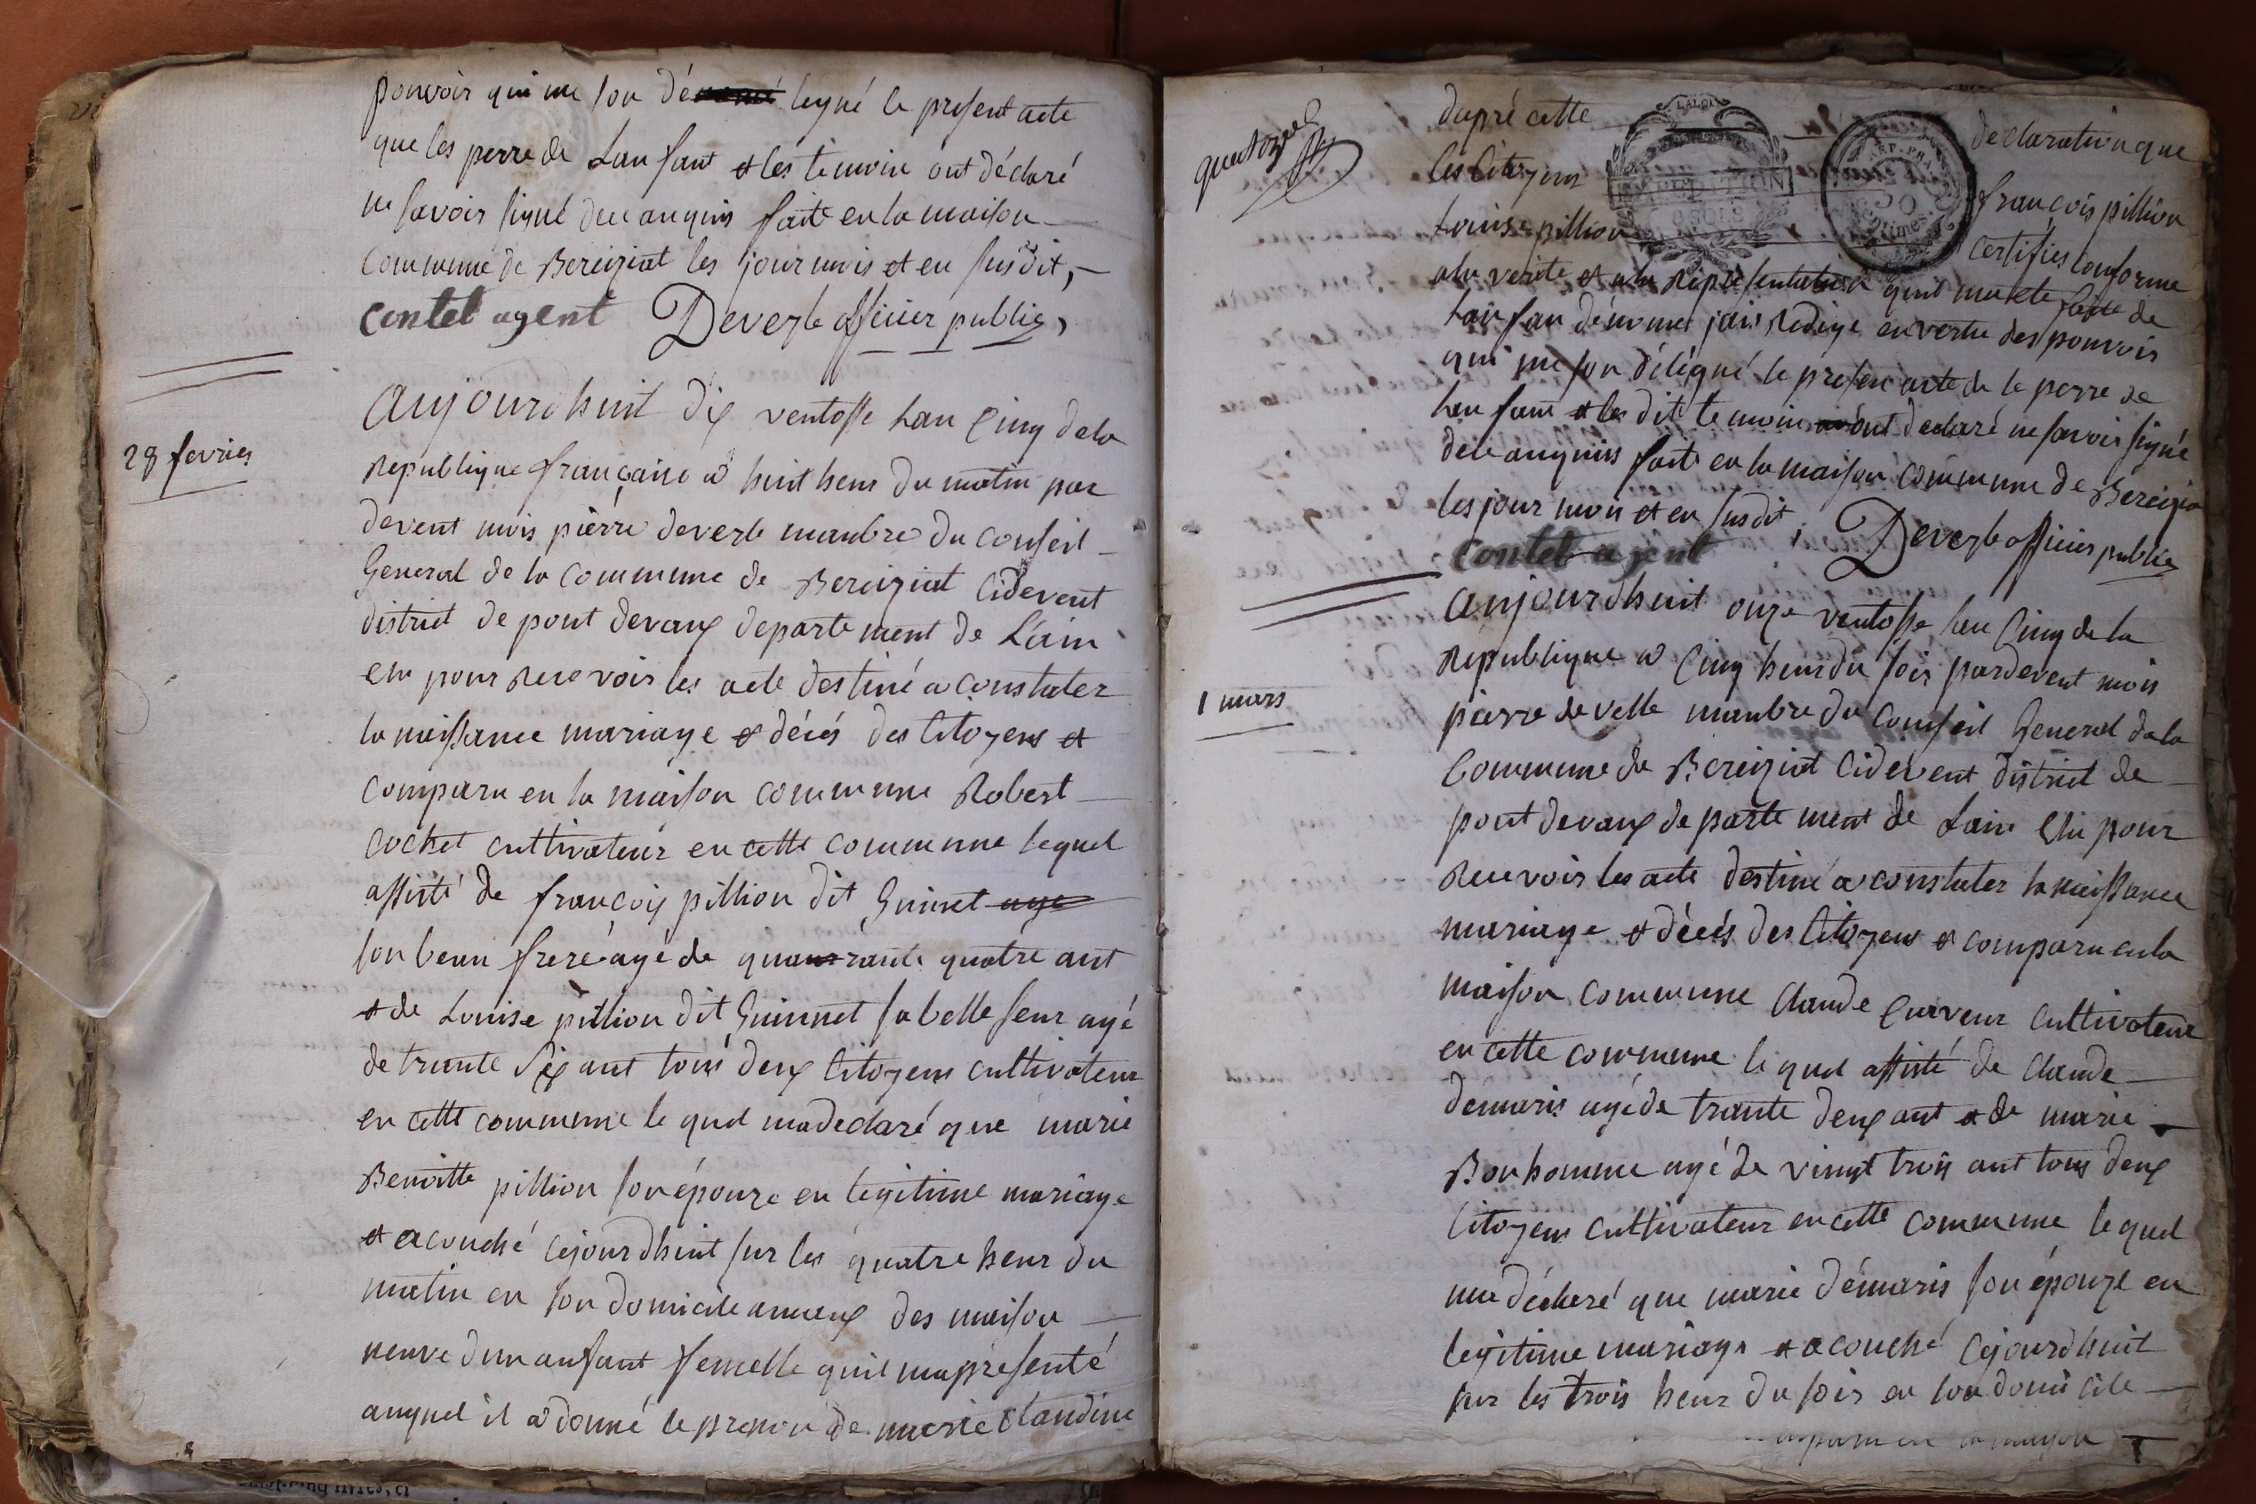 pouvoir qui me son dé legné le present acte
que les perre de Lanfant et les temoin ont déclaré
ne savoir signé dece anquis fait en la maison
commune de Bereiziat les jour mois et en susdit,
contet agent Deverle officier public,
28 fevrier
aujourdhuit dix ventosse Lan Cinq dela
Republique françaisse a huit heur du matin par
devent mois pierre deverle manbre du conseil
General de la commune de Bereiziat Cidevent
district de pont devaux departement de Lain
elu pour recevoir les acte destiné a constater
la naissance mariage et décés des Citoyens et
comparu en la maison commune Robert
cochet cultivateur en cette commune lequel
assisté de françois pillion dit Guinet age
son beau frere agé de quarrante quatre ant
et de Louise pillion dit Guinnet sa belle seur agé
de trante six ant tous deux Citoyens cultivateur
en cette commune le quel ma declaré que marie
Benoitte pillion son épouze en legitime mariage
et acouché cejourdhuit sur les quatre heur du
matin en son domicile anneux des maison
neuve dun anfant femelle quil ma presenté
auquel il a donné le prenon de marie Claudine
quatorze
dapré cette declaration que
les Citoyens françois pillion
Louise pillion certifies conforme
a la verite et a la representation quil ma ete faite de
Lanfan dénomer jais redige en vertu des pouvois
qui me son délégué le presen acte de le perre de
Lan fant et les dit temoin ont declaré ne savoir signé
dece anquis fait en la maison commune de Bereizia
les jour mois et en susdit, Deverle officier public
contet agent
REP. FRA.
50
1 mars
aujourdhuit onze ventosse Lan Cinq de la
Republique a Cinq heur du soir pardevent mois
pierre develle manbre du conseil General dela
Commune de Bereiziat Cidevent district de
pont devaux departement de Lain Elu pour
recevoir les acte destiné a constater la naissance
mariage et décés des Citoyens et comparu en la
maison commune Claude Curveur cultivateur
en cette commune le quel assisté de Claude
démaris agé de trante deux ant et de marie
Bonhomme agé de vingt trois ant tous deux
Citoyens cultivateur en cette commune le quel
ma déclaré que marie démaris son épouze en
legitime mariage et acouché cejourdhuit
sur les trois heur du soir en son domicile